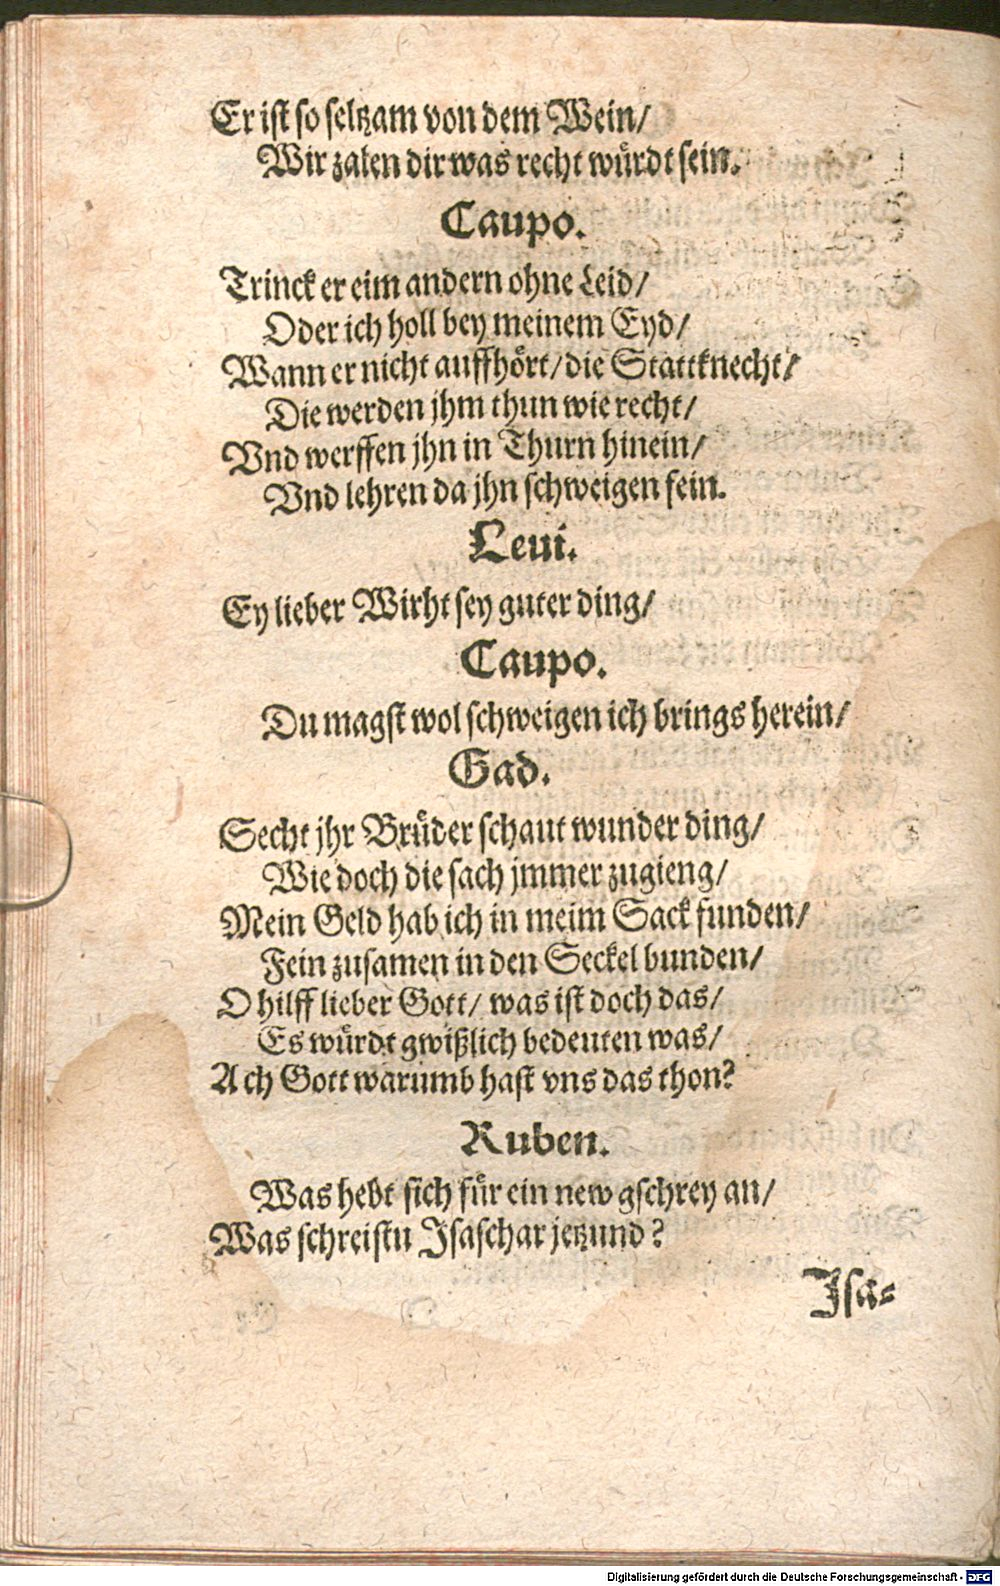 Er ist so seltzam von dem Wein/
Wir zalen dir was recht wuͤrdt sein.
Caupo.
Trinck er eim andern ohne Leid/
Oder ich holl bey meinem Eyd/
Wann er nicht auffhoͤrt/ die Stattknecht/
Die werden jhm thun wie recht/
Vnd werffen jhn in Thurn hinein/
Vnd lehren da jhn schweigen fein.
Leui.
Ey lieber Wirht sey guter ding/
Caupo.
Du magst wol schweigen ich brings herein/
Gad.
Secht jhr Bruͤder schaut wunder ding/
Wie doch die sach jmmer zugieng/
Mein Geld hab ich in meim Sack funden/
Fein zusamen in den Seckel bunden/
O hilff lieber Gott/ was ist doch das/
Es wuͤrdt gwißlich bedeuten was/
Ach Gott warumb hast vns das thon?
Ruben.
Was hebt sich fuͤr ein new gschrey an/
Was schreistu Isaschar jetzund?
Isa-
Digitalisierung gefördert durch die Deutsche Forschungsgemeinschaft - DFG